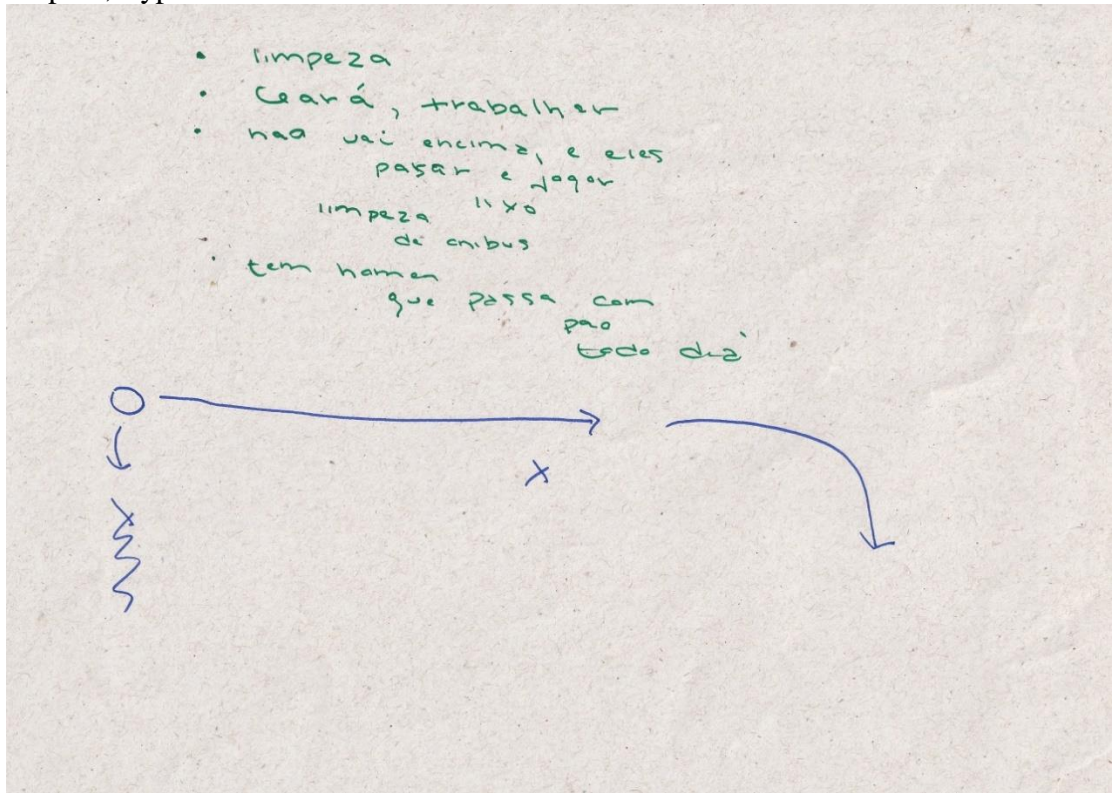 • limpeza
• Ceará, trabalhar
• nao vai encima, e eles
pasar e jogar
lixo
limpeza
de onibus
• tem homen
que passa com
pao
todo dia